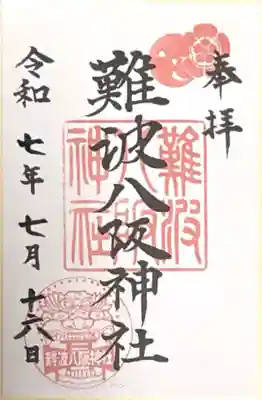 奉拝
難波八阪神社
難波
八阪
神社
難波八阪神社
令和七年七月十六日